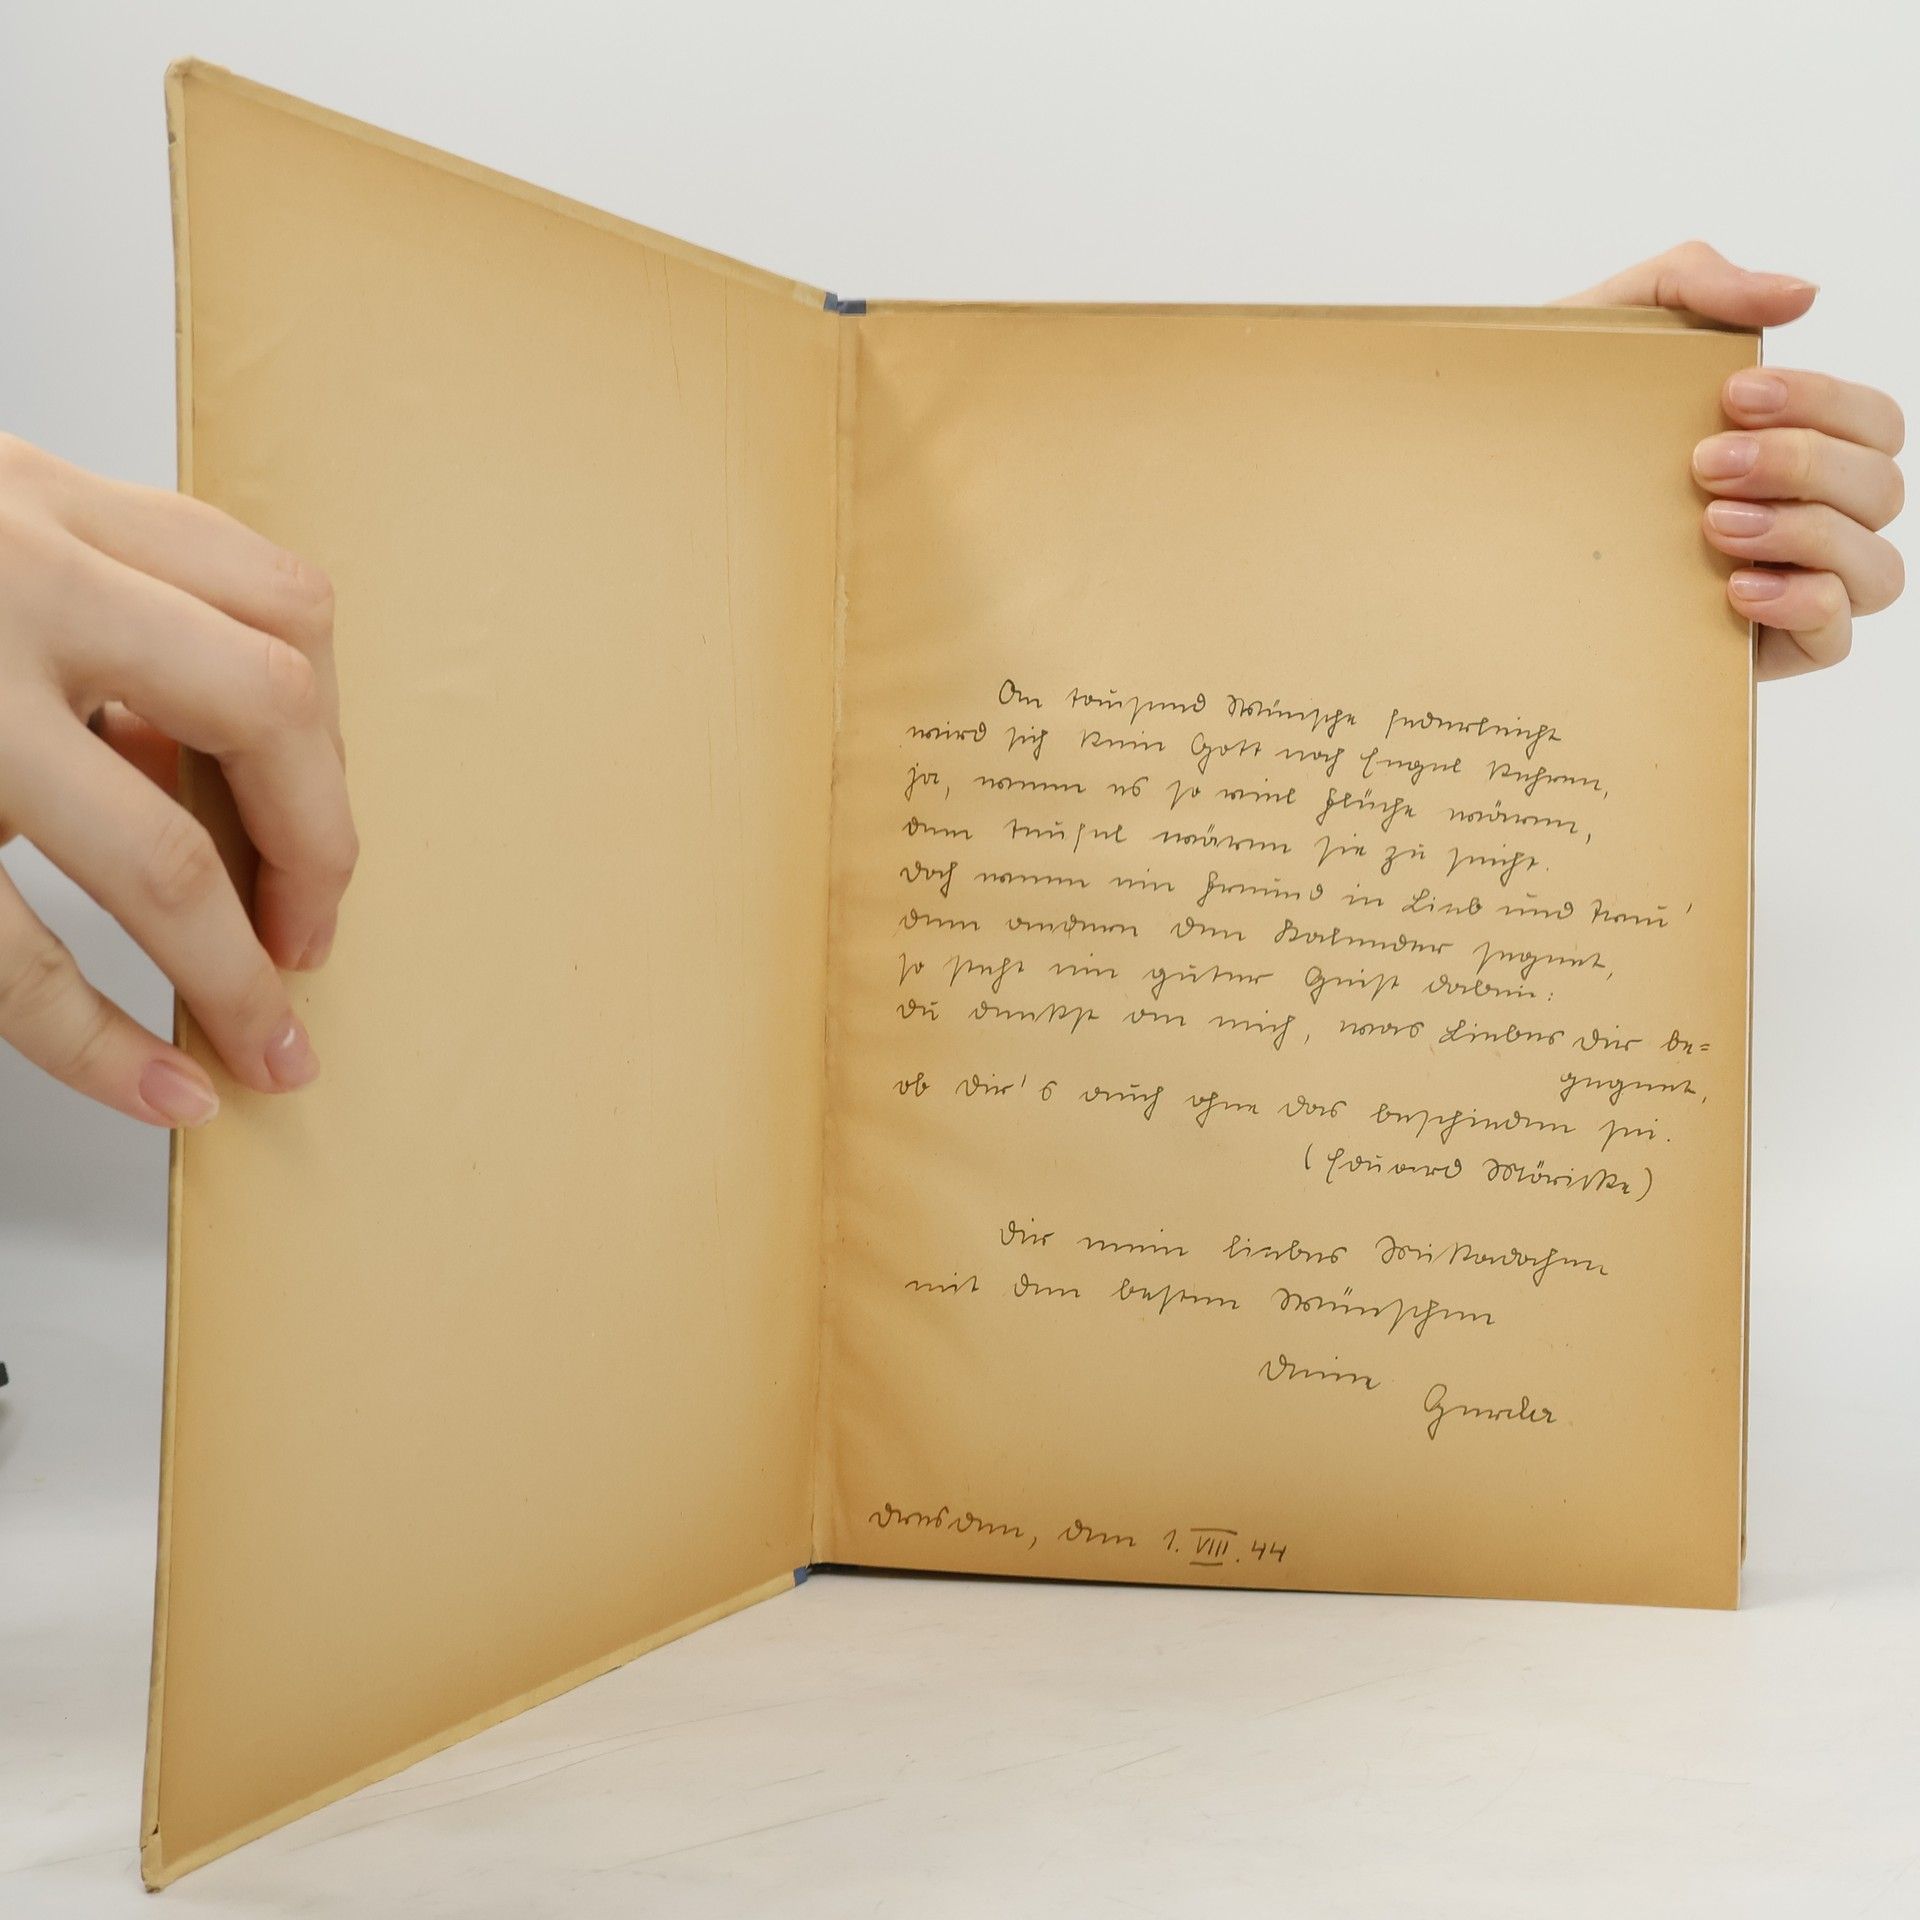 An tausend Wünsche federleicht
wird sich kein Gott noch Engel kehren,
ja, wenn es so viel Flüche wären,
dem Teufel wären sie zu seicht.
Doch wenn ein Freund in Lieb und Treu'
dem andern den Kalender segnet,
so steht ein guter Geist dabei:
du denkst an mich, was Liebes dir be=
gegnet,
ob dir's auch ohne das beschieden sei.
(Eduard Möricke)
Dir mein liebes Mikadochen
mit den besten Wünschen
Deine
Gerda
Dresden, den 1. VIII. 44